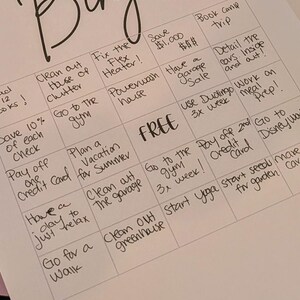 Bing
12
ooks!
Clean out
House of
Clutter
Fix the
Flex
Heater!
Save
$1,000
$$$
Book camp
trip
Save 10%
of each
Check
Go to the
gym
Powerwash
house
Have a
garage
Sale
Detail the
cars inside
and out!
Pay off
one
Credit Card
Plan a
Vacation
for Summer
FREE
use Duolingo
3x week
Work on
meal
Prep!
Have a
day to
just relax
Clean out
the garage
Go to the
gym
3x week!
Pay off 2nd
Credit
Card
Go to
Disney
Go for a
walk
Clean out
greenhouse
Start yoga
start seeds
for garden
move